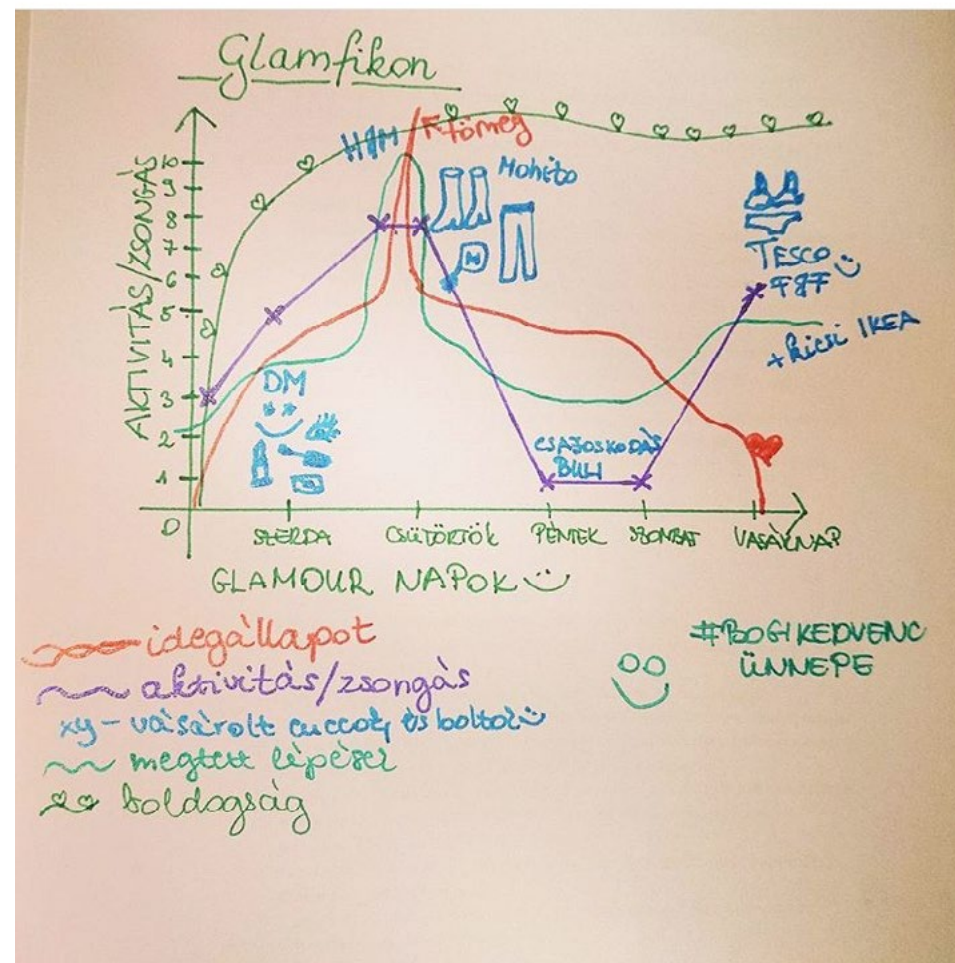 Glamfikon
AKTIVITÁS/ZSONGÁS
H&M
tömeg
Mohito
10
9
8
7
6
5
4
3
2
1
0
M
TESCO
F&F
+ kicsi IKEA
DM
CSAJOSKODÁS
BULI
SZERDA CSÜTÖRTÖK PÉNTEK SZOMBAT VASÁRNAP
GLAMOUR NAPOK
idegállapot
aktivitás/zsongás
xy - vásárolt cuccok, és boltok
megtett lépések
boldogság
#BOGIKEDVENC
ÜNNEPE